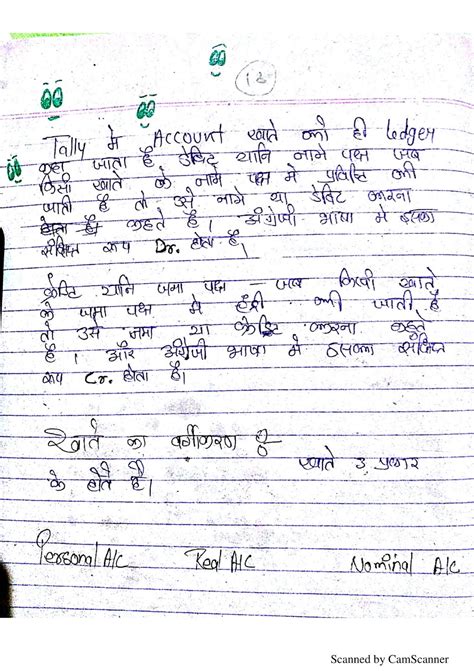 13
Tally मे Account खाते को ही Ledger
कहा जाता है, डेबिट यानि नामे पक्ष जब
किसी खाते के नामे पक्ष मे प्रविष्टि की
जाती है तो उसे नामे या डेबिट करना
होता है कहते है। अंग्रेजी भाषा मे इसका
संक्षिप्त रूप Dr. होता है।
क्रेडिट यानि जमा पक्ष जब किसी खाते
के जमा पक्ष मे एंट्री की जाती है
तो उसे जमा या क्रेडिट करना कहते
है। और अंग्रेजी भाषा मे इसका संक्षिप्त
रूप Cr. होता है।
खाते का वर्गीकरण :-
खाते 3 प्रकार
के होते है।
Personal A/C Real A/C Nominal A/C
Scanned by CamScanner